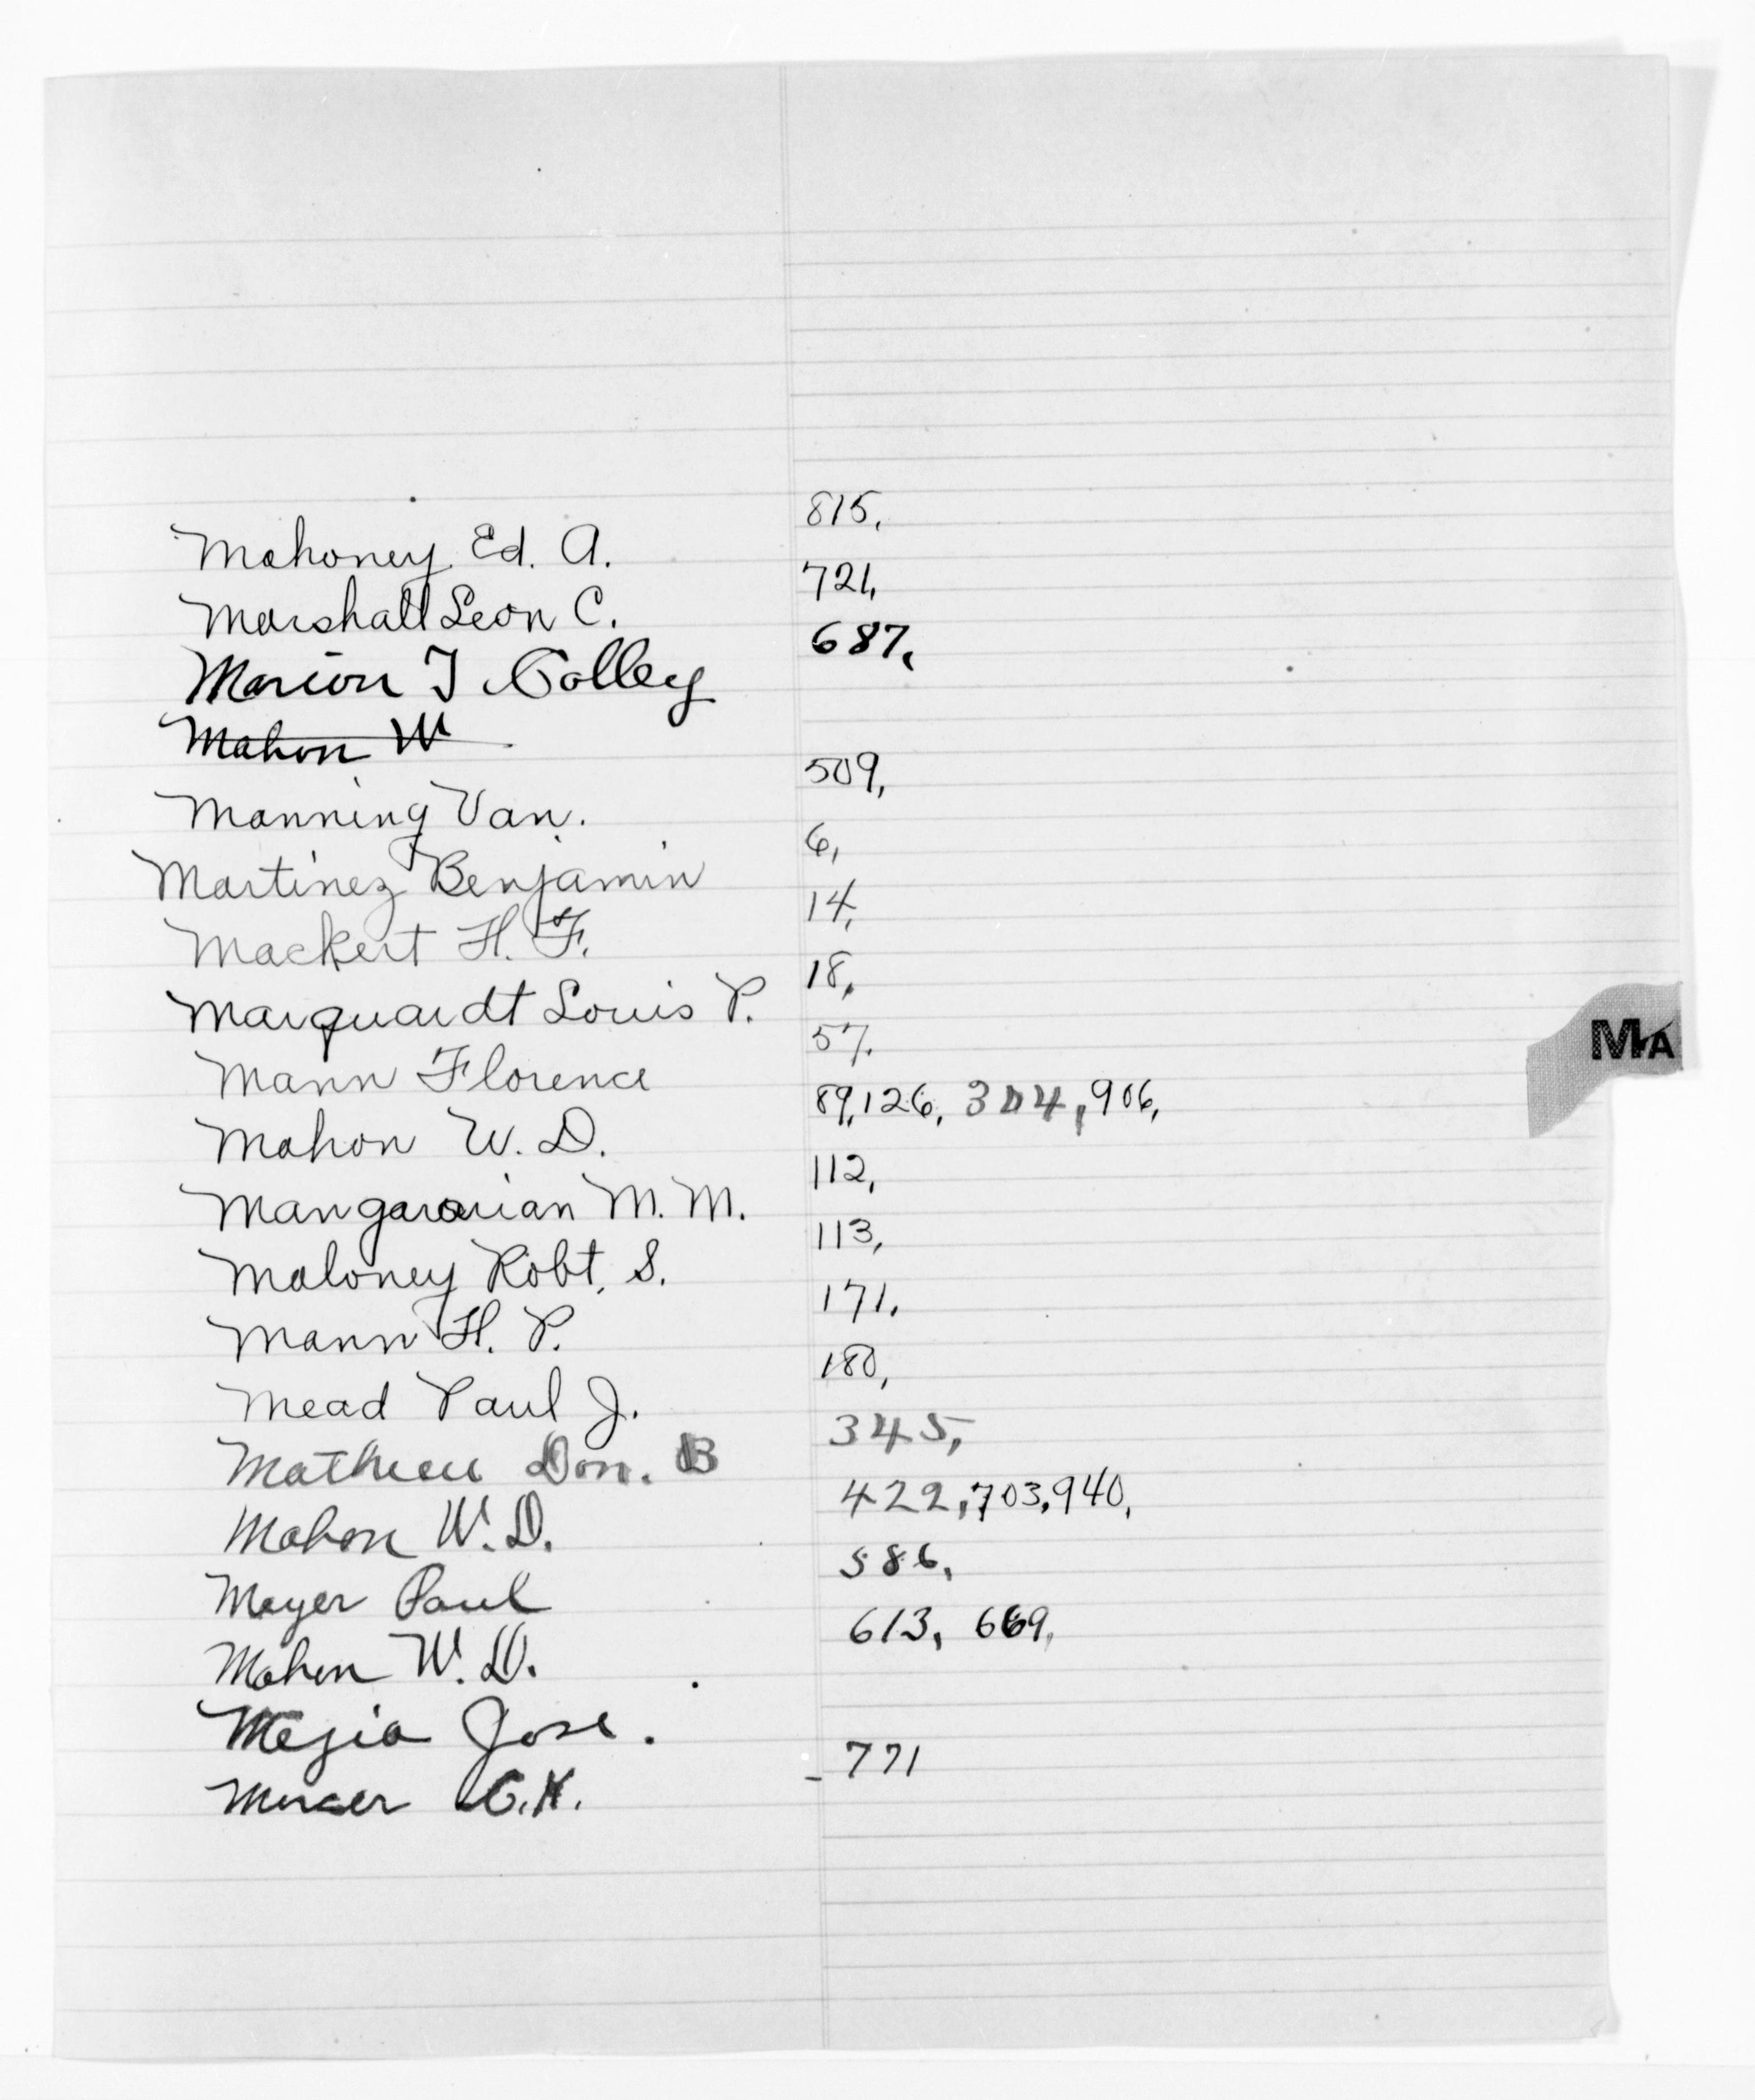 Mahoney Ed. A. 815,
Marshall Leon C. 721,
Marion T Colley 687,
Mahon W
Manning Van. 509,
Martinez Benjamin 6,
Mackert H. F. 14,
Marquardt Louis P. 18,
Mann Florence 57.
Mahon W. D. 89, 126, 304, 906,
Mangasarian M. M. 112,
Maloney Robt. S. 113,
Mann H. P. 171,
Mead Paul J. 180,
Mathieu Don. B 345,
Mahon W. D. 422, 703, 940,
Mayer Paul 586,
Mahon W. D. 613, 669,
Mejia Jose.
Mercer C. H. 771
MA